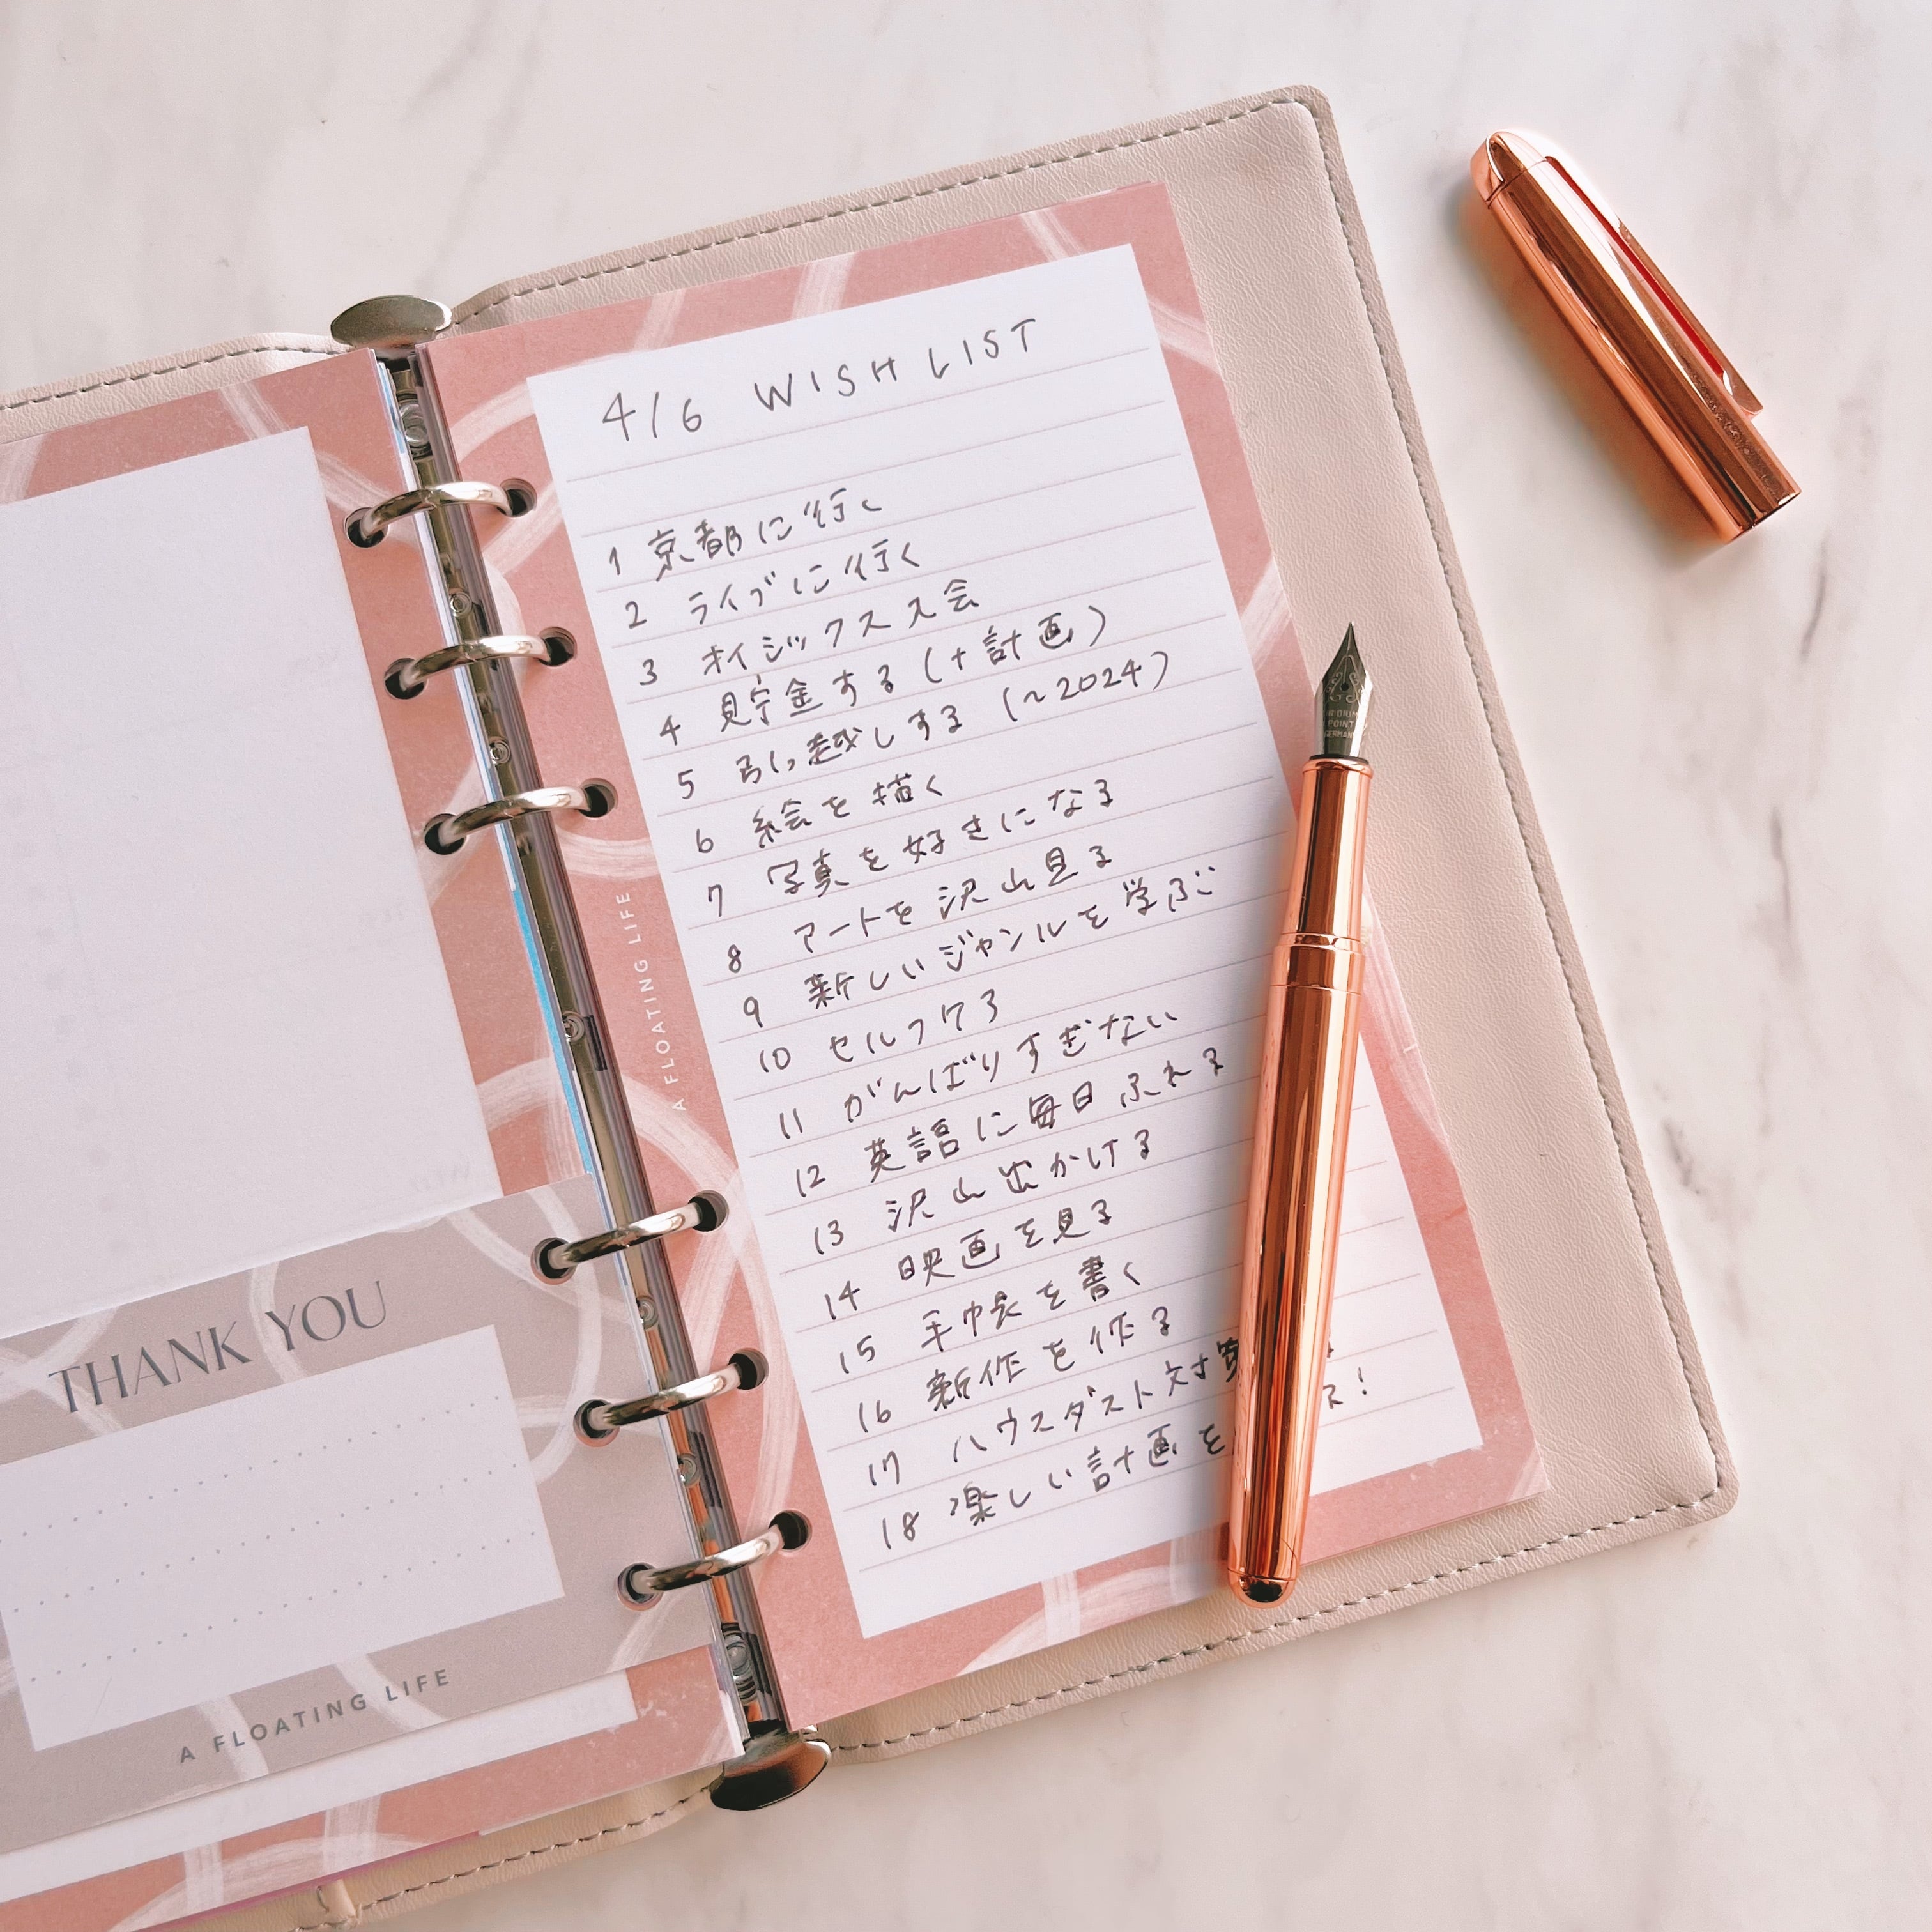 THANK YOU
A FLOATING LIFE
A FLOATING LIFE
4/6 WISH LIST
1 京都に行く
2 ライブに行く
3 オイシックス入会
4 貯金する(+計画)
5 引っ越しする (~2024)
6 絵を描く
7 写真を好きになる
8 アートを沢山見る
9 新しいジャンルを学ぶ
10 セルフケア
11 がんばりすぎない
12 英語に毎日ふれる
13 沢山出かける
14 映画を見る
15 手帳を書く
16 新作を作る
17 ハウスダスト対策
18 楽しい計画を
POINT
GERMANY